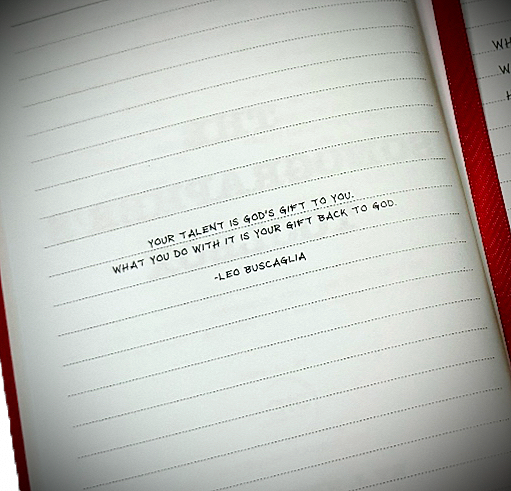 YOUR TALENT IS GOD'S GIFT TO YOU.
WHAT YOU DO WITH IT IS YOUR GIFT BACK TO GOD.
-LEO BUSCAGLIA